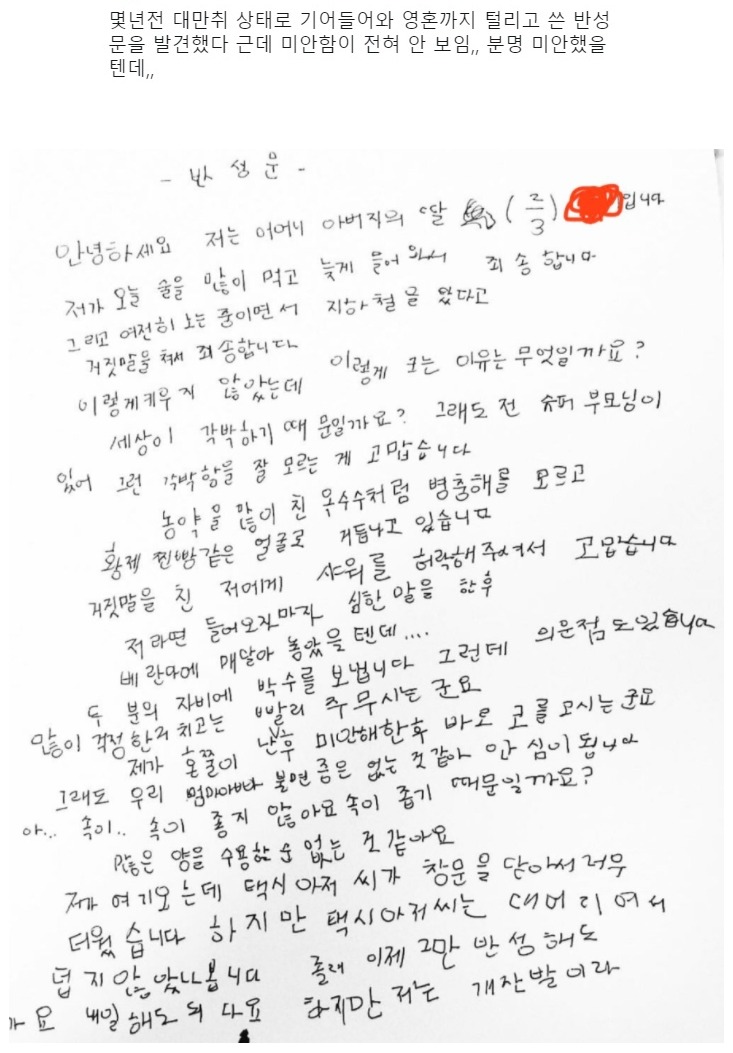 몇년전 대만취 상태로 기어들어와 영혼까지 털리고 쓴 반성
문을 발견했다 근데 미안함이 전혀 안 보임,, 분명 미안했을
텐데,,
- 반 성 문 -
안녕하세요 저는 어머니 아버지의 딸 (2/3) 입니다
저가 오늘 술을 많이 먹고 늦게 들어 와서 죄송 합니다
그리고 여전히 노는 중이면서 지하철을 왔다고
거짓말을 쳐서 죄송합니다
이렇게키우지 않았는데 이렇게 크는 이유는 무엇일까요?
세상이 각박하기 때문일까요? 그래도 전 슈퍼 부모님이
있어 그런 각박함을 잘 모르는 게 고맙습니다
농약을 많이 친 옥수수처럼 병충해를 모르고
황제 찐빵같은 얼굴로 거듭나고 있습니다
거짓말을 친 저에게 샤워를 허락해주셔서 고맙습니다
저라면 들어오자마자 심한 말을 한후
베란다에 매달아 놓았을 텐데....
두 분의 자비에 박수를 보냅니다 그런데 의문점도있습니다
많이 걱정한거 치고는 빨리 주무시는 군요
제가 혼쭐이 난후 미안해한후 바로 코를 고시는군요
그래도 우리 엄마아빠가 불면증은 없는 것같아 안심이됩니다
아... 속이.. 속이 좋지 않아요 속이 좁기 때문일까요?
많은 양을 수용할 순 없는 것 같아요
제가 여기오는데 택시 아저씨가 창문을 닫아서 너무
더웠습니다 하지만 택시아저씨는 대머리여서
덥지않았나봅니다 졸려 이제 그만 반성해도
요 내일 해도 되 다요 하지만 저는 개잔발이라